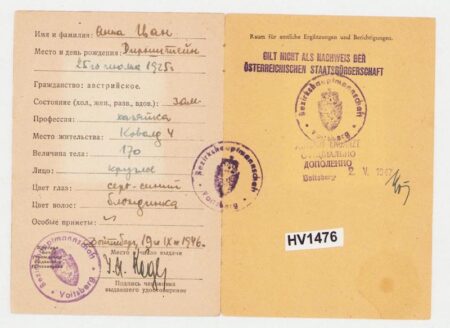 Имя и фамилия: Анна Цан
Место и день рождения:
25го июля 1925г.
Гражданство: австрийское.
Состояние (хол, жен, разв, вдов.): зам.
Профессия: хозяйка
Место жительства: Ковалд 4
Величина тела: 170
Лицо: круглое
Цвет глаз: серо-синий
Цвет волос: блондинка
Особые приметы: ~
Войтсберг, 19го IX го 1946.
Место и число выдачи
Подпись чиновника
выдавшего удостоверение
Bezirkshauptmannschaft
Voitsberg
Bezirkshauptmannschaft
Voitsberg
Raum für amtliche Ergänzungen und Berichtigungen.
GILT NICHT ALS NACHWEIS DER
ÖSTERREICHISCHEN STAATSBÜRGERSCHAFT
Bezirkshauptmannschaft
Voitsberg
ОФИЦИАЛЬНО
ДОПОЛНЕНО
Voitsberg 2. V. 1947
HV1476